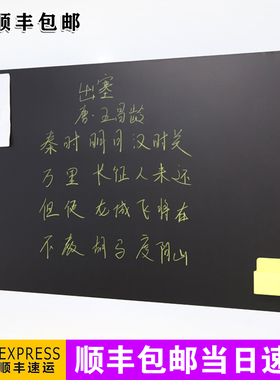 顺丰包邮
出塞
唐·王昌龄
秦时明月汉时关
万里长征人未还
但使龙城飞将在
不教胡马度阴山
EXPRESS
顺丰速运
顺丰包邮当日速